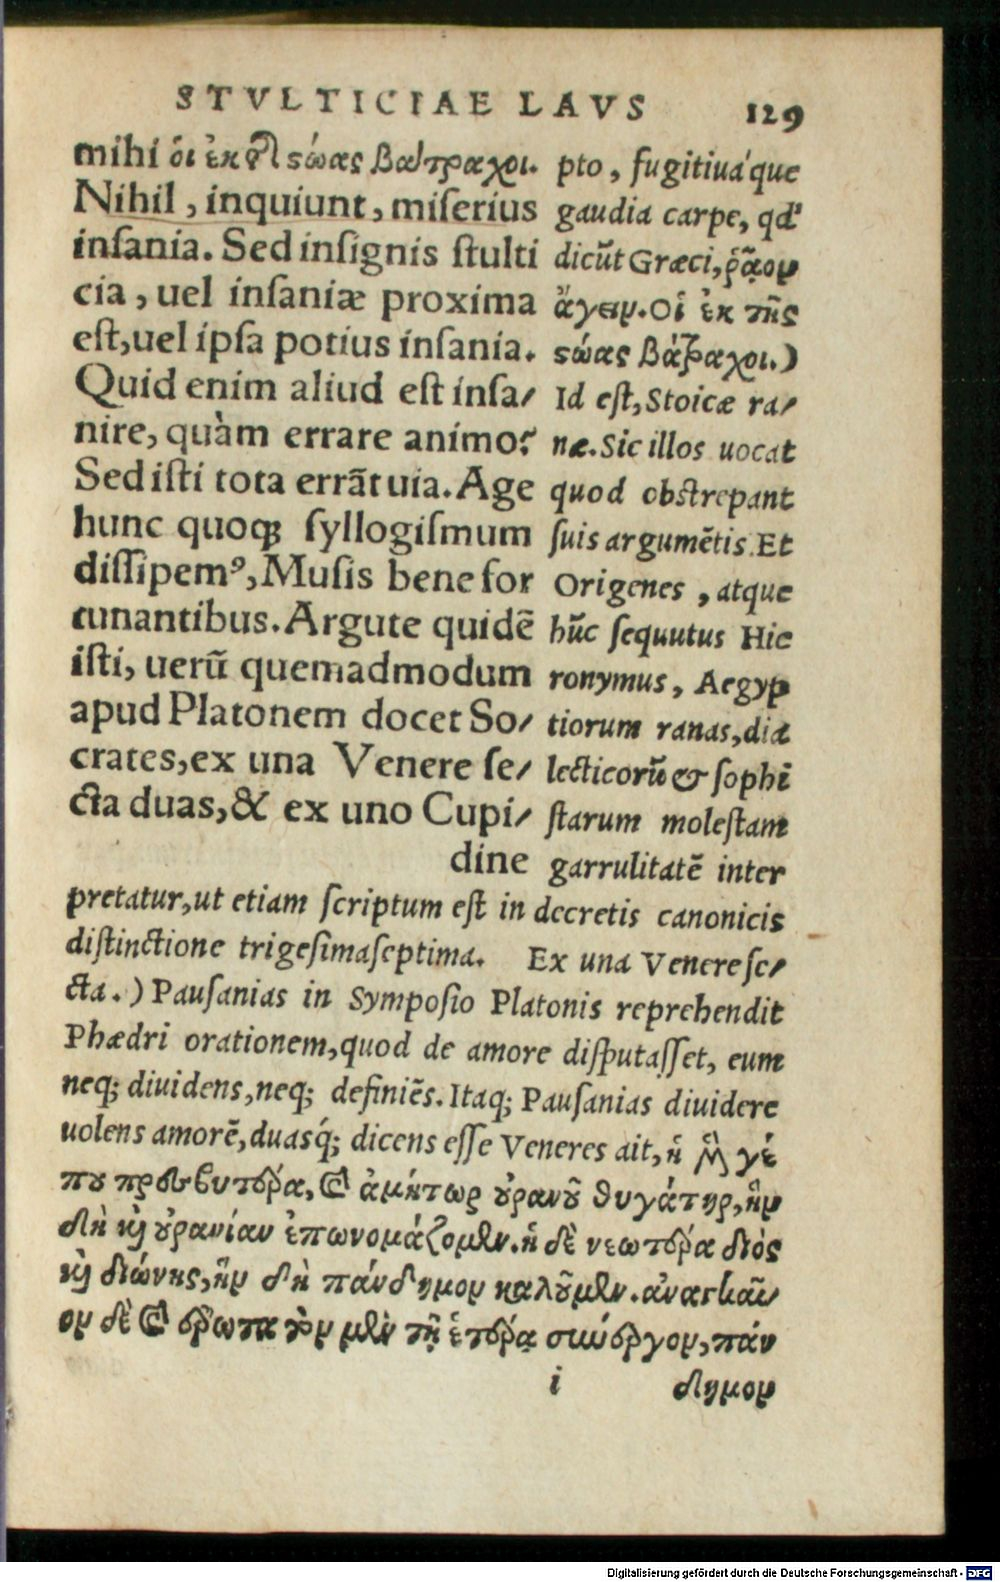 STVLTICIAE LAVS 129
mihi οἱ ἐκ τῆς στώας βάτραχοι.
Nihil, inquiunt, miserius
insania. Sed insignis stulti
cia, uel insaniæ proxima
est, uel ipsa potius insania.
Quid enim aliud est insa/
nire, quàm errare animo?
Sed isti tota errãt uia. Age
hunc quoq; syllogismum
dissipemꝰ, Musis bene for
tunantibus. Argute quidẽ
isti, uerũ quemadmodum
apud Platonem docet So/
crates, ex una Venere se/
cta duas, & ex uno Cupi/
dine
pto, fugitiuáque
gaudia carpe, qđ
dicũt Græci, ῥᾷον
ἄγειν. Οἱ ἐκ τῆς
στώας βάτραχοι.)
Id est, Stoicæ ra/
næ. Sic illos uocat
quod obstrepant
suis argumẽtis. Et
Origenes, atque
hũc sequutus Hie
ronymus, Aegyp
tiorum ranas, dia
lecticorũ & sophi
starum molestam
garrulitatẽ inter
pretatur, ut etiam scriptum est in decretis canonicis
distinctione trigesimaseptima. Ex una Venere se/
cta.) Pausanias in Symposio Platonis reprehendit
Phædri orationem, quod de amore disputasset, eum
neq; diuidens, neq; definiẽs. Itaq; Pausanias diuidere
uolens amorẽ, duasq́; dicens esse Veneres ait, ἡ μέν γέ
που πρεσβυτέρα, καὶ ἀμήτωρ οὐρανοῦ θυγάτηρ, ἣν
δὴ καὶ οὐρανίαν ἐπωνομάζομεν. ἡ δὲ νεωτέρα διὸς
καὶ διώνης, ἣν δὴ πάνδημον καλοῦμεν. ἀναγκαῖ/
ον δὲ καὶ ἔρωτα τὸν μὲν τῇ ἑτέρᾳ συνεργον, πάν
i δημον
Digitalisierung gefördert durch die Deutsche Forschungsgemeinschaft - DFG